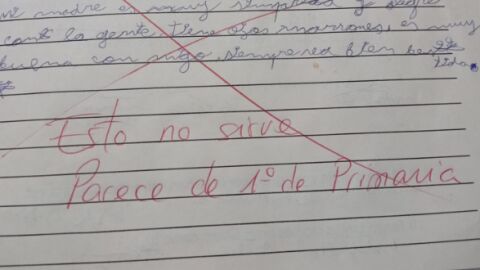 mi madre es muy simpatica y
con la gente, tiene ojos marrones, es muy
buena con migo, siempre va bien
tida.
Esto no sirve
Parece de 1º de Primaria